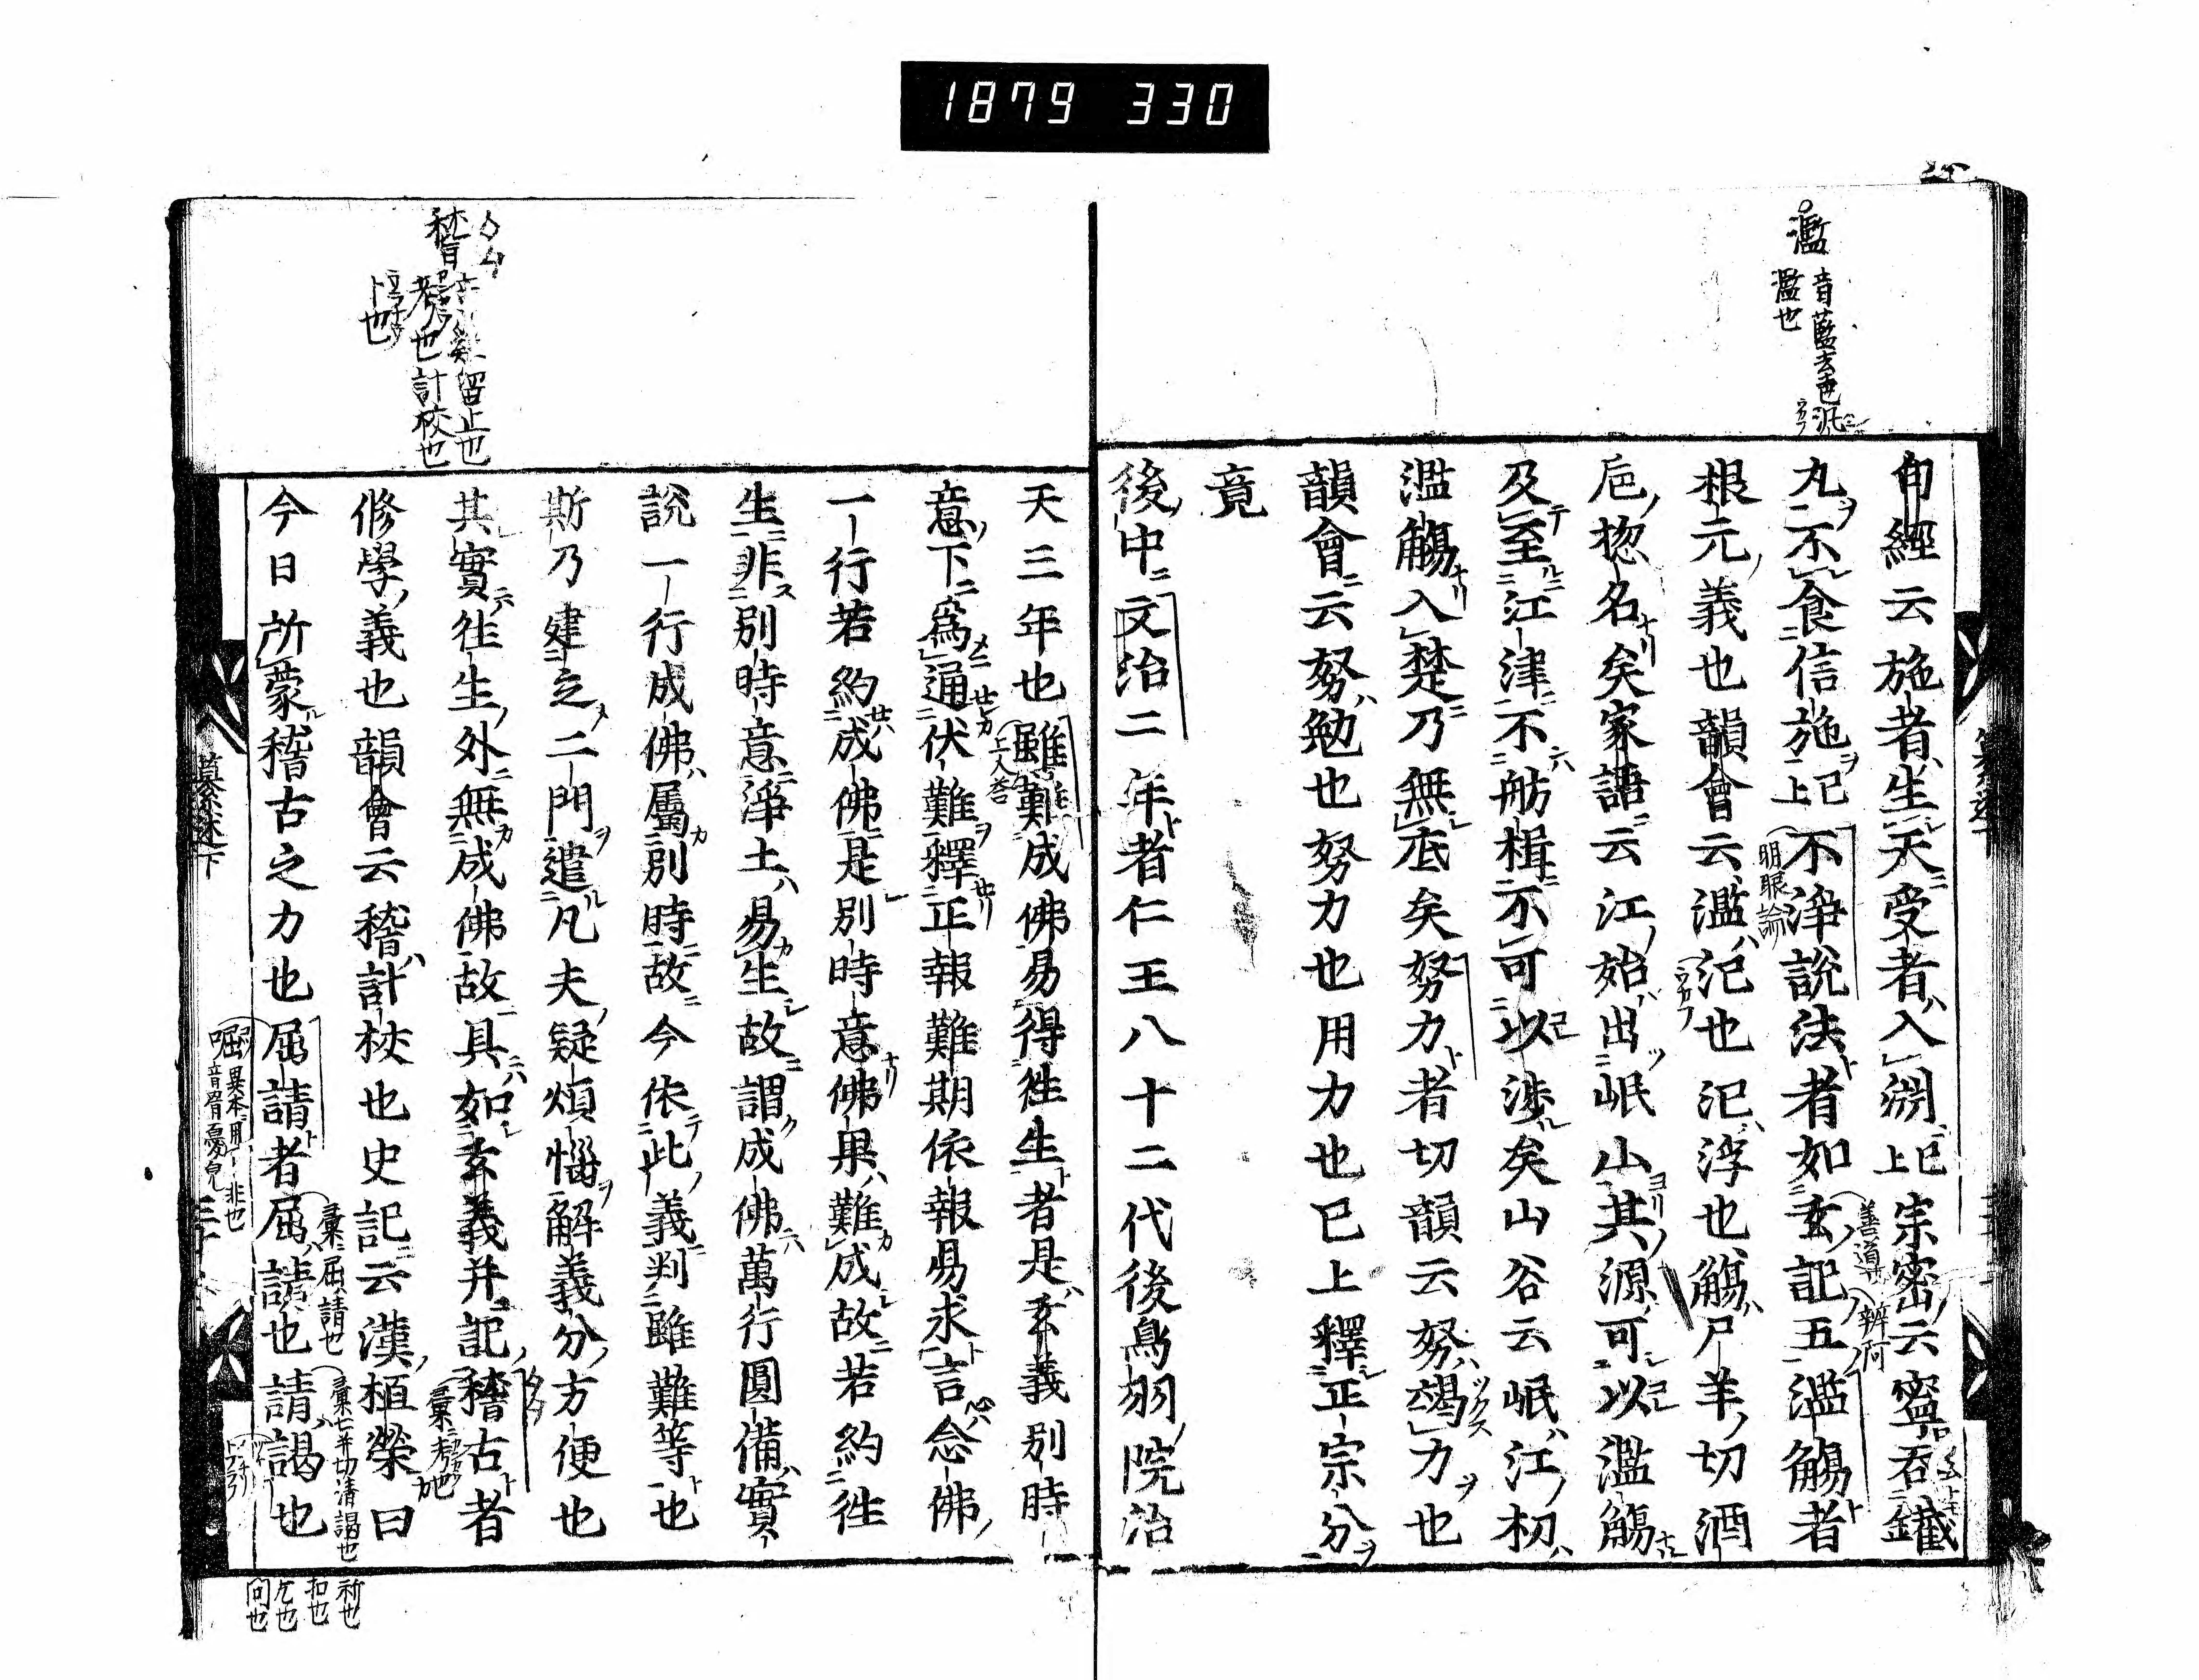 1879 330
濫
音藍去也汎
濫也
旬經云施者生天受者入淵已上宗密云寧吞鐵
丸不食信施已上不淨説法者如玄記五濫觴者
明眼論
善導
辨阿
根元義也韻會云濫氾也氾浮也觴尸羊切酒
巵惣名矣家語云江始出岷山其源可以濫觴
及至江津不舫楫不可以渉矣山谷云岷江初
濫觴入楚乃無底矣努力者切韻云努竭力也
韻會云努勉也努力也用力也已上釋正宗分
竟
後中文治二年者仁王八十二代後鳥羽院治
稽
留止也
考也計校也
卜也
天三年也雖難成佛易得徃生者是玄義別時
意下為通伏難釋正報難期依報易求言念佛
一行若約成佛是別時意佛果難成故若約徃
生非別時意淨土易生故謂成佛萬行圓備實
説一行成佛屬別時故今依此義判雖難等也
斯乃建立二門遣凡夫疑煩惱解義分方便也
其實徃生外無成佛故具如玄義并記稽古者
修學義也韻會云稽計挍也史記云漢桓榮曰
今日所蒙稽古之力也屈請者屈請也請謁也
彙屈請也
彙七井切清謁也
祈也
扣也
乞也
問也